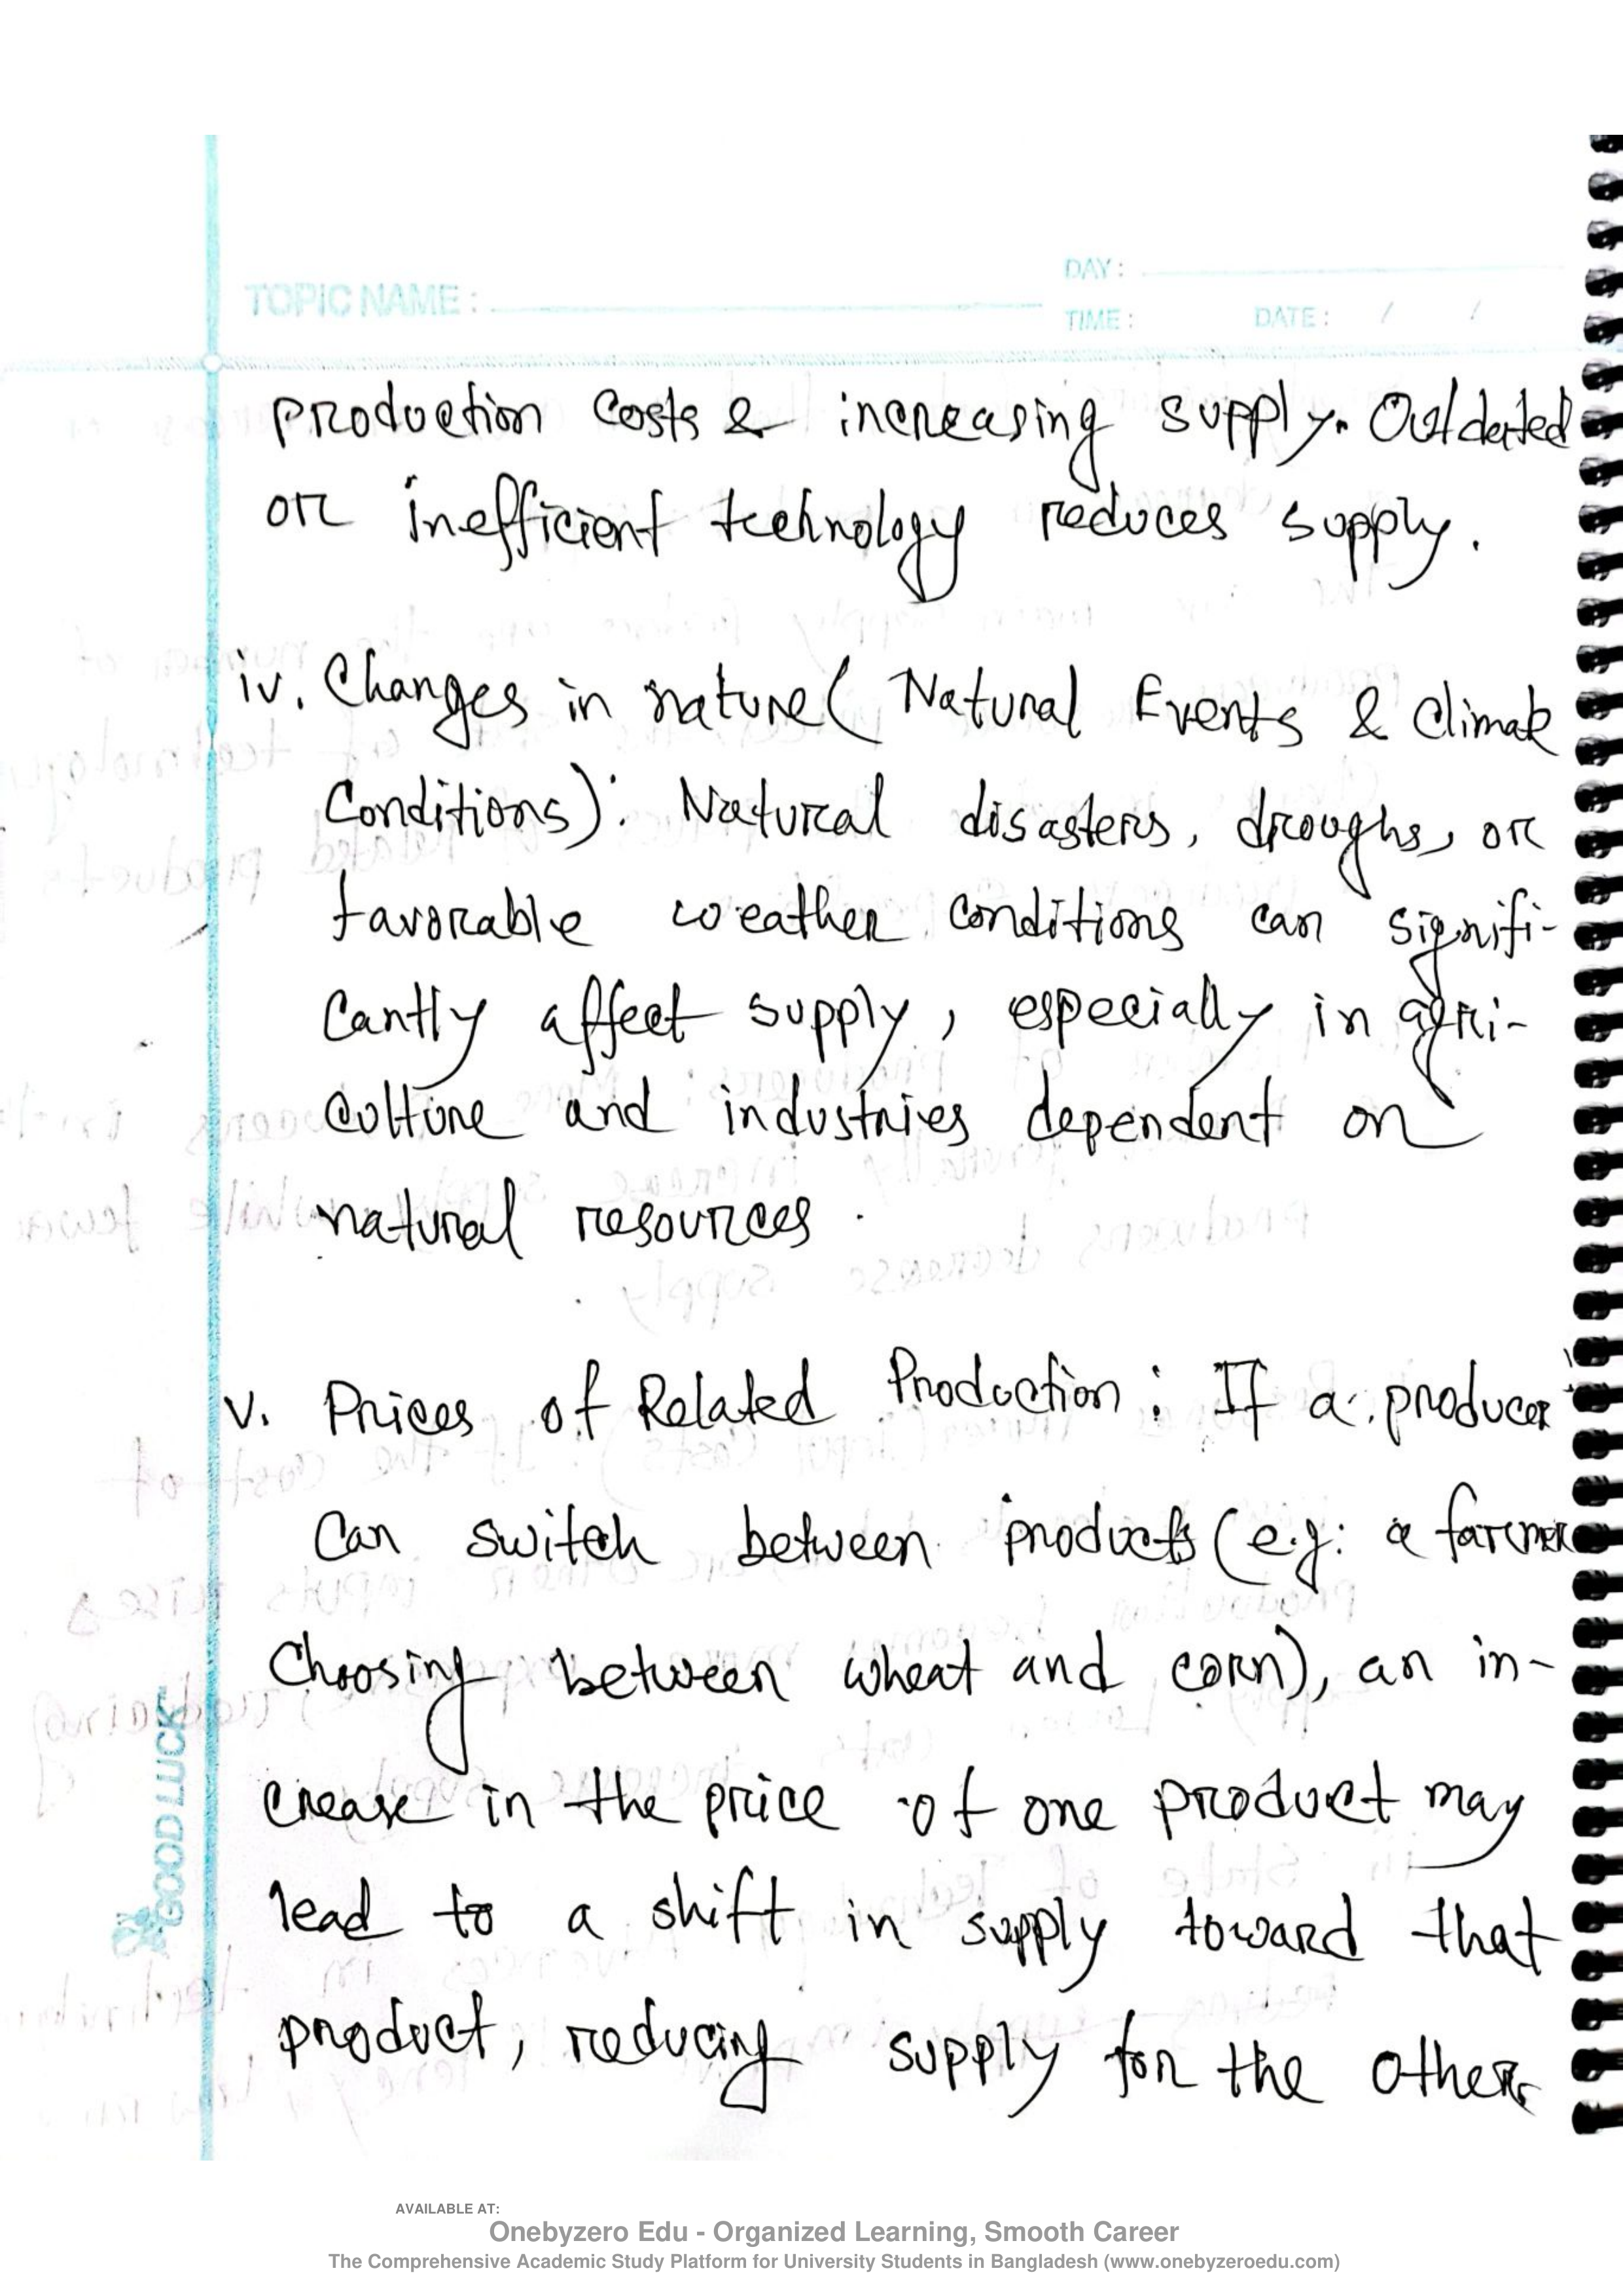 TOPIC NAME :
DAY :
TIME :
DATE : / /
production costs & increasing supply. Outdated
or inefficient technology reduces supply.
iv. Changes in nature ( Natural Events & Climate
Conditions): Natural disasters, droughs, or
favorable weather conditions can signifi-
cantly affect supply, especially in agri-
culture and industries dependent on
natural resources.
v. Prices of Related Production : If a producer
can switch between products (e.g: a farmer
choosing between wheat and corn), an in-
crease in the price of one product may
lead to a shift in supply toward that
product, reducing supply for the other
GOOD LUCK
AVAILABLE AT:
Onebyzero Edu - Organized Learning, Smooth Career
The Comprehensive Academic Study Platform for University Students in Bangladesh (www.onebyzeroedu.com)